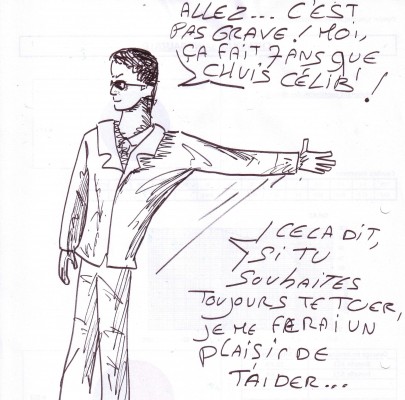 ALLEZ... C'EST
PAS GRAVE! MOI,
ÇA FAIT 7 ANS QUE
CHUIS CÉLIB'!
CELA DIT,
SI TU
SOUHAITES
TOUJOURS TE TUER,
JE ME FERAI UN
PLAISIR DE
T'AIDER...